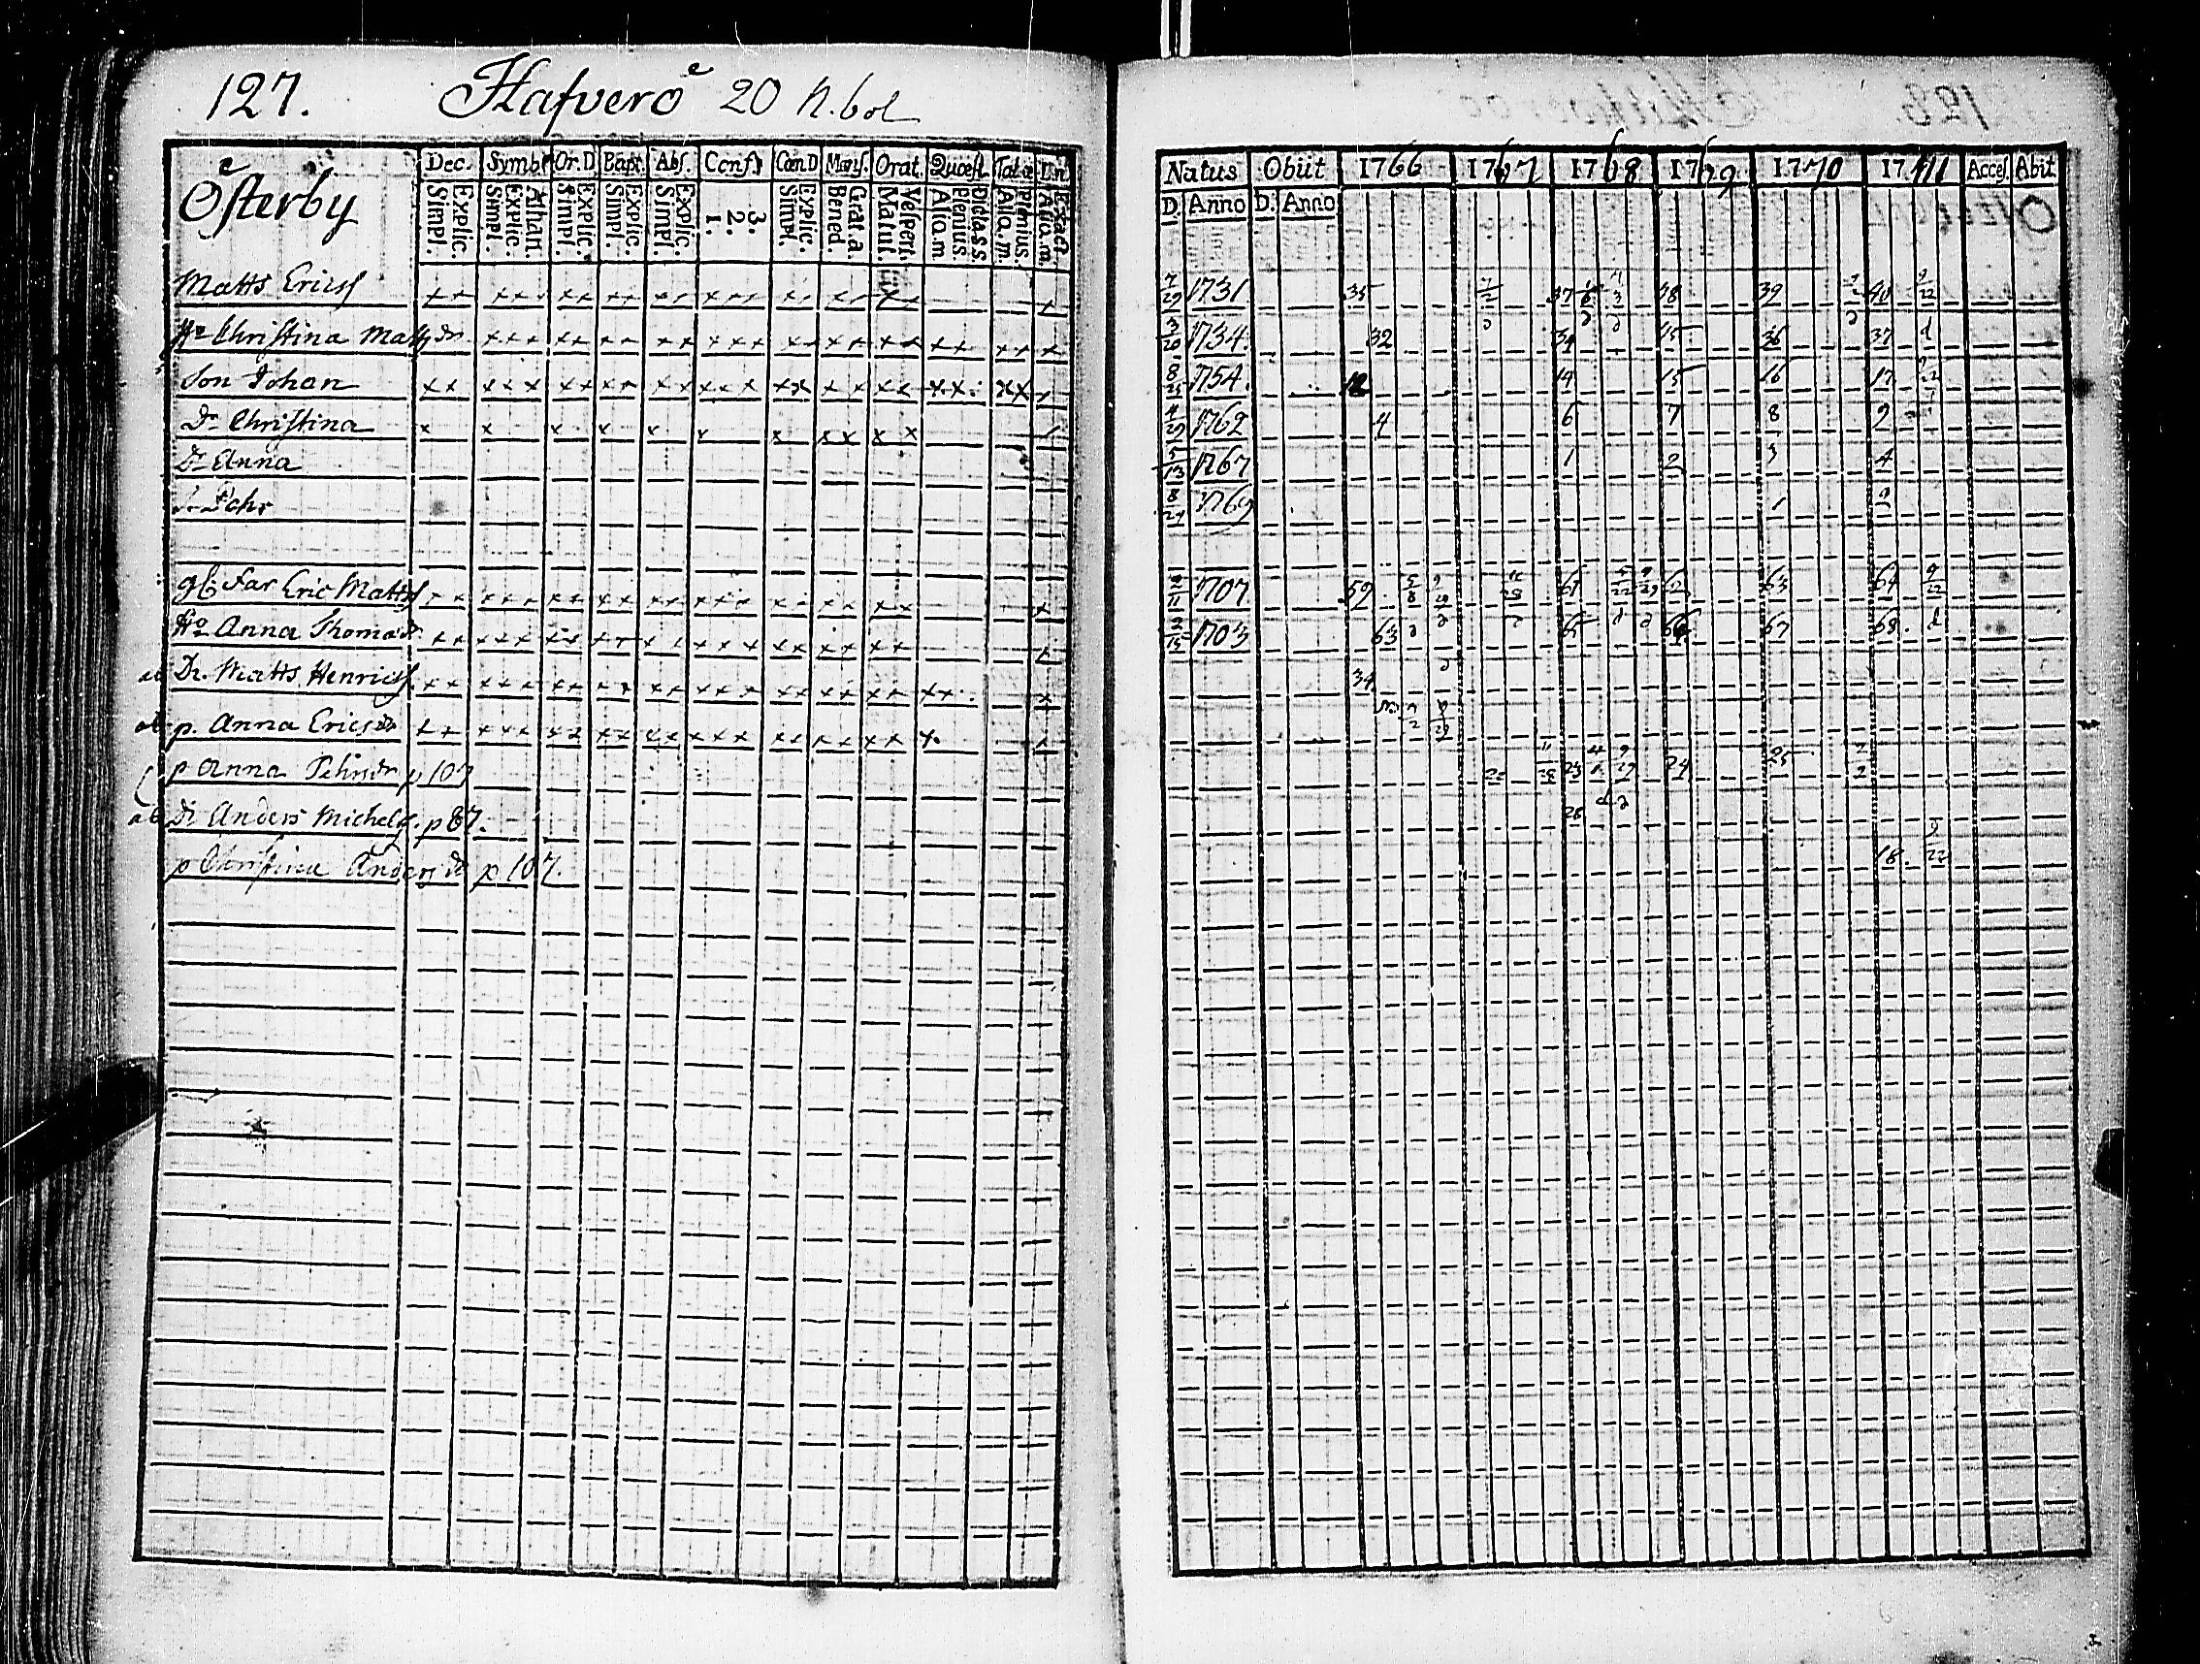 127. Hafverö 20 h.bol
Österby
Dec. Symbl Or.D Bapt. Abs. Conf. Cœn.D Mens. Orat. Quæst. Tab.æ
Simpl. Explic. Simpl. Explic. Athan. Simpl. Explic. Simpl. Explic. Simpl. Explic. 1. 2. 3. Simpl. Explic. Bened. Grat.a. Matut. Vespert. Alio.m Plenius Dicta s.s. Alio.m. Plenius. Alio.m. Exact.
Natus Obiit 1766 1767 1768 1769 1770 1771 Acces. Abit
D. Anno D. Anno
Matts Ericss 7/29 1731 35 7/2 37 38 39 40 9/22
H:o Christina Matsdr 3/20 1734 32 34 35 36 37 d
Son Johan 8/25 1754. 12 14 15 16 17
Dr Christina 4/29 1762 4 6 7 8 9
Dr Anna 5/13 1767 1 2 3 4
S. Pehr 8/29 1769 1 2
gl: Far Eric Mattss 1707 59 61 62 63 64 9/22
H:o Anna Thomadr 2/15 1703 63 65 66 67 68 d
ab Dr. Matts Henricss 34
ab p. Anna Ericsdr
p Anna Pehrsdr p 107 11/28 24 25
ab Dr Anders Michelss. p 87. 28
p Christina Andersdr p 107. 18. 9/22